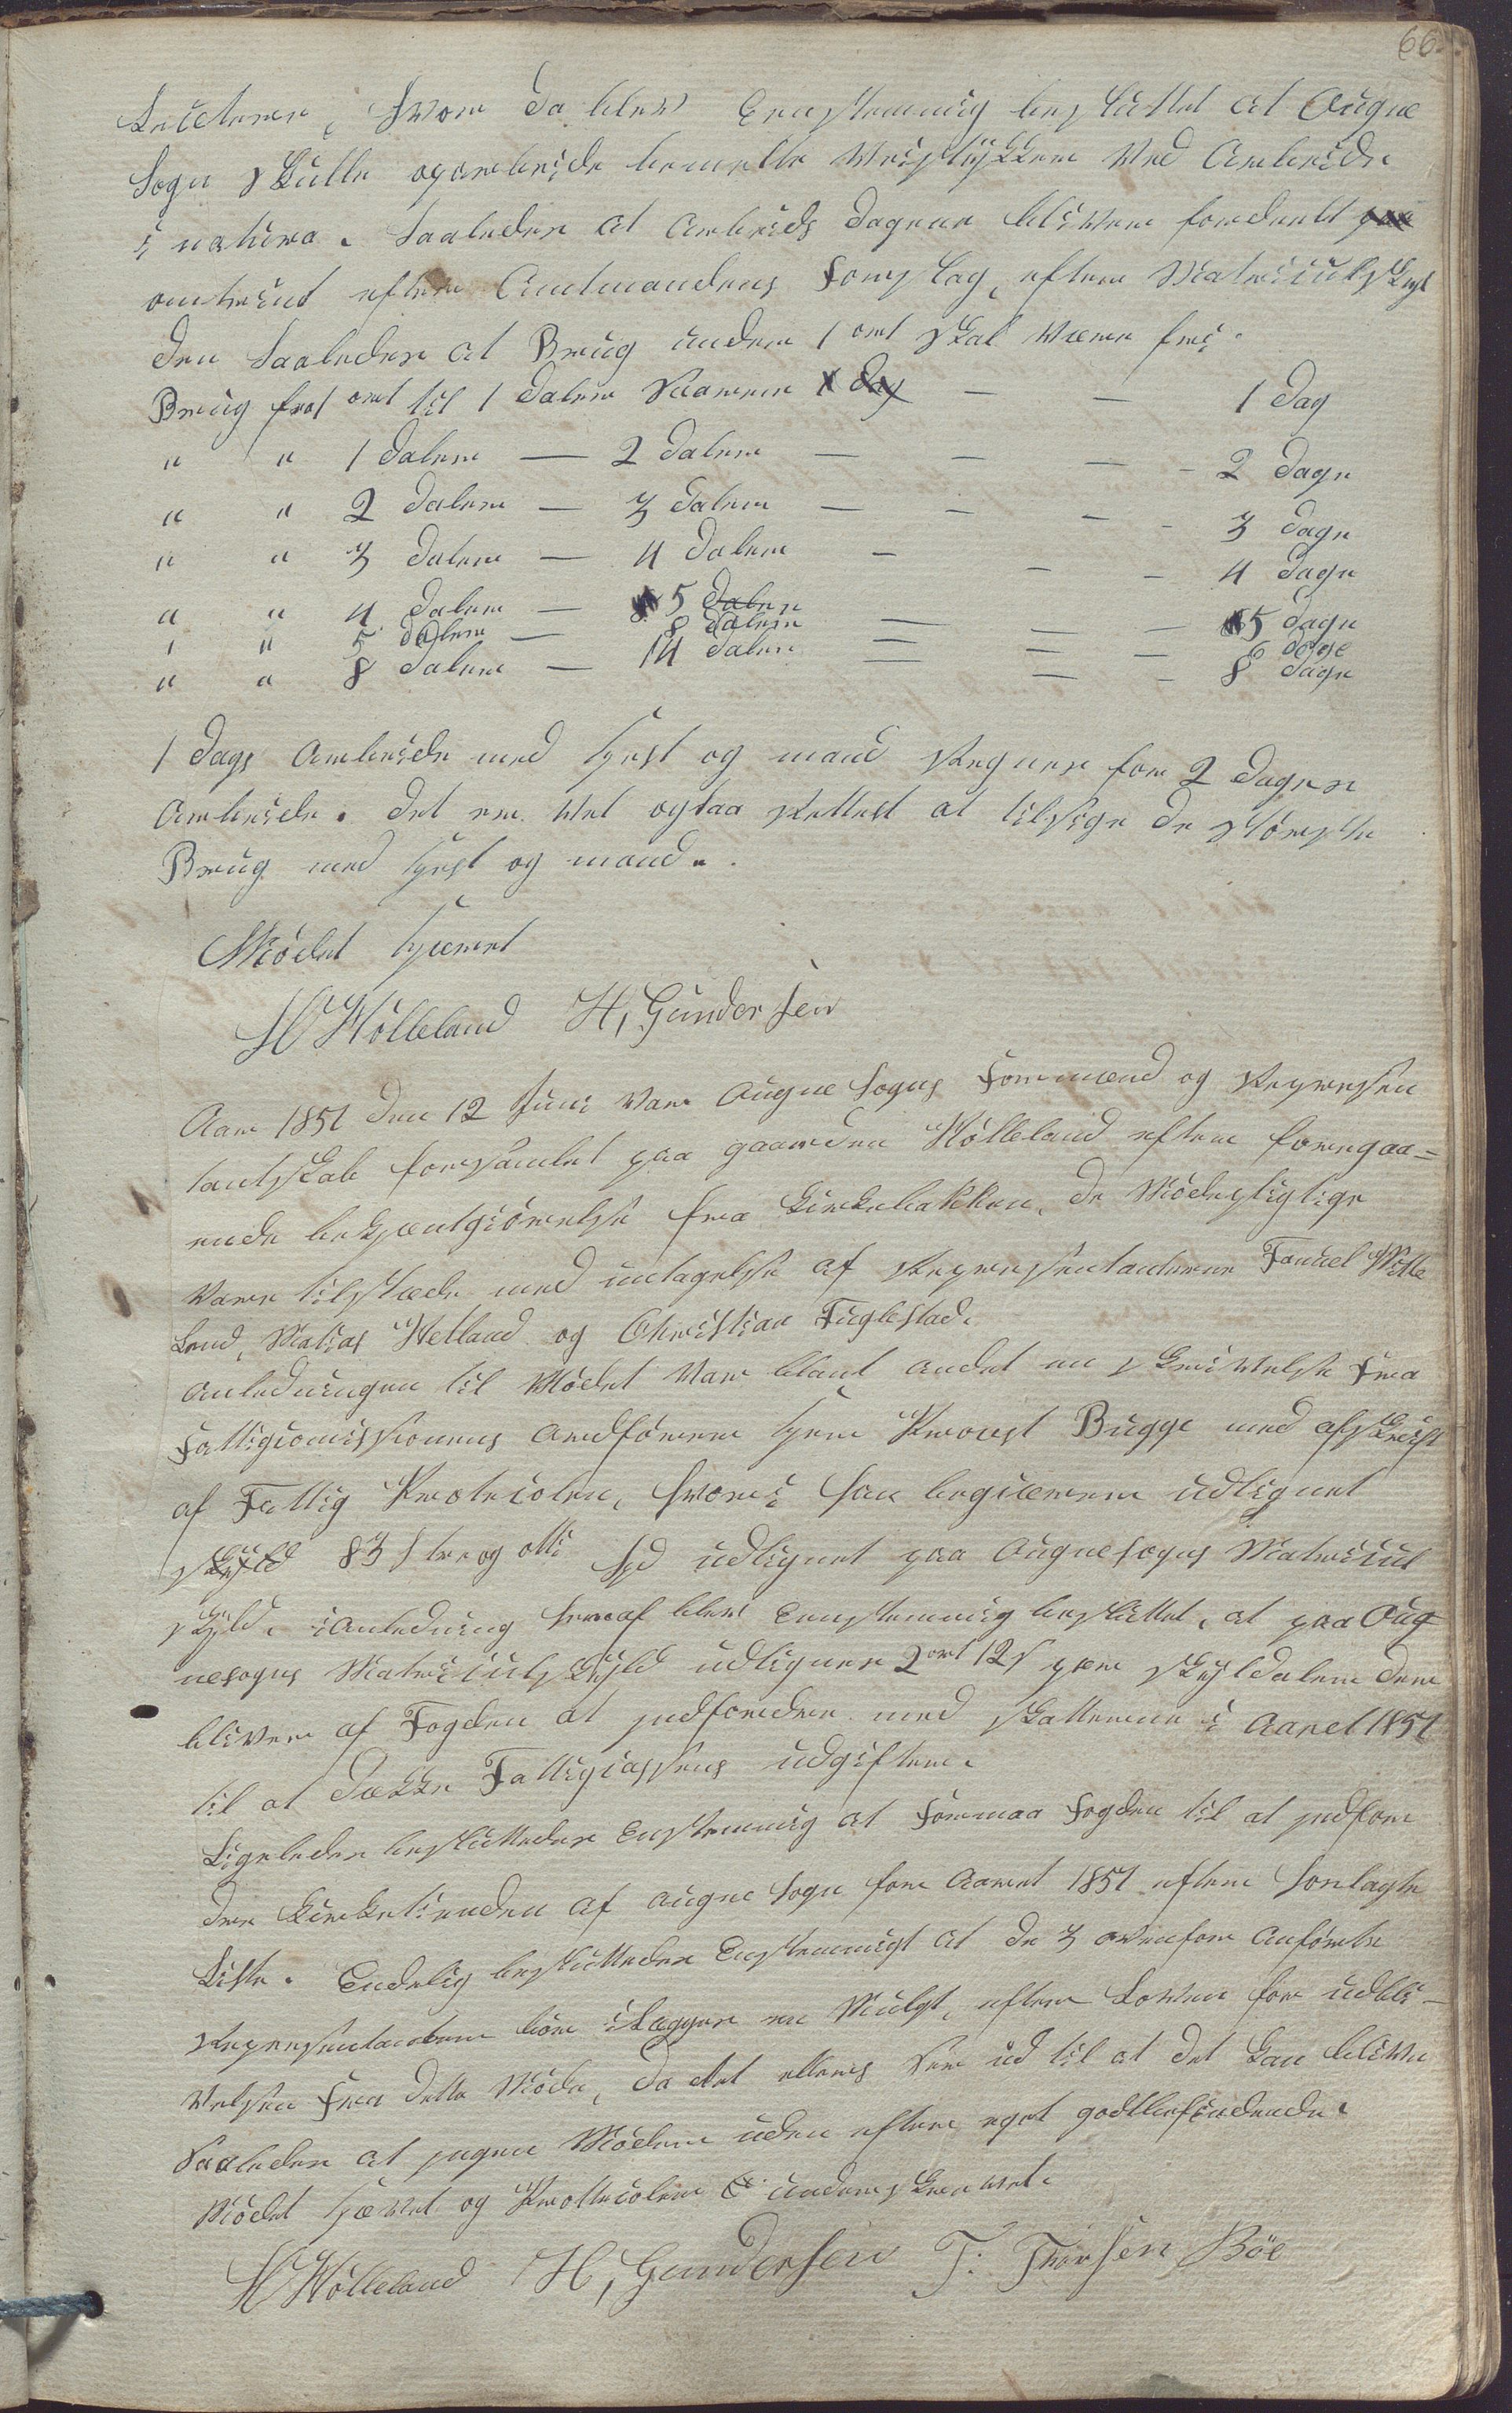 66.
hvor da blev Eenstemmig besluttet at Augne
Sogn skulle oparbeide bemelte Veistykker ved Arbeide
i natura. Saaledes at Arbeids dagene bliver fordeelt paa
omtrent efter Amtmandens Forslag, efter Matriculskyl
den Saaledes at Brug under 1 ort skal være fri.
Brug fra 1 ort til 1 daler Svarer 1 dag — — 1 dag
" " 1 daler — 2 daler — — — - 2 dage
" " 2 daler — 3 daler — — — - 3 dage
" " 3 daler — 4 daler — — — 4 dage
" " 4 daler — 5 daler — — — 5 dage
" " 5 daler — 8 daler — — — 6 dage
" " 8 daler — 14 daler — — — 8 dage
1 dags Arbeide med hest og mand Regnes for 2 dages
Arbeide. det er vel ogsaa Rettest at tilsige de største
Brug med hest og mand.
Mødet hævet
H Hölleland H, Gundersen
Aar 1851 den 12 Juni var Augne Sogns Formænd og Represen
tantskab forsamlet paa gaarden Hølleland efter foregaa=
ende bekjentgiørelse fra Kirkebakken, de Mødepligtige
vare tilstæde med undtagelse af Representanterne
Land, Matias Hetland og Christian Fuglestad.
Anledningen til Mødet var blant andet en skrivelse fra
Fattigcomissionens Ordfører Herr Provst Bugge med afskrift
af Fattig Protocolen, hvori han begierer udlignet
skyld 83 s tre og otti Spd udlignet paa Augnesogns Matricul
skyld. i Anledning heraf blev Eenstemmig besluttet, at paa Aug
nesogns Matriculskyld udlignes 2 ort 12 s per skylddaler der
bliver af Fogden at indfordre med skatterne i Aaret 1851
til at dække Fattigcassens udgifter.
Ligeledes besluttedes Enstemmig at formaa Fogden til at indfor
dre Kirketienden af Augne Sogn for Aaret 1851 efter forlagte
Liste. Endelig besluttedes Enstemmigt at de 3 ovenfor anførte
Representanter bør ilægges en Mulgt, efter Loven for udbli-
velsen fra dette Møde, da det ellers Ser ud til at det kan blive
Saaledes at ingen Møder uden efter eget godtbefindende.
Mødet hævet og Protocolen underskrevet.
H Hölleland H, Gundersen T: Thorsen Böe